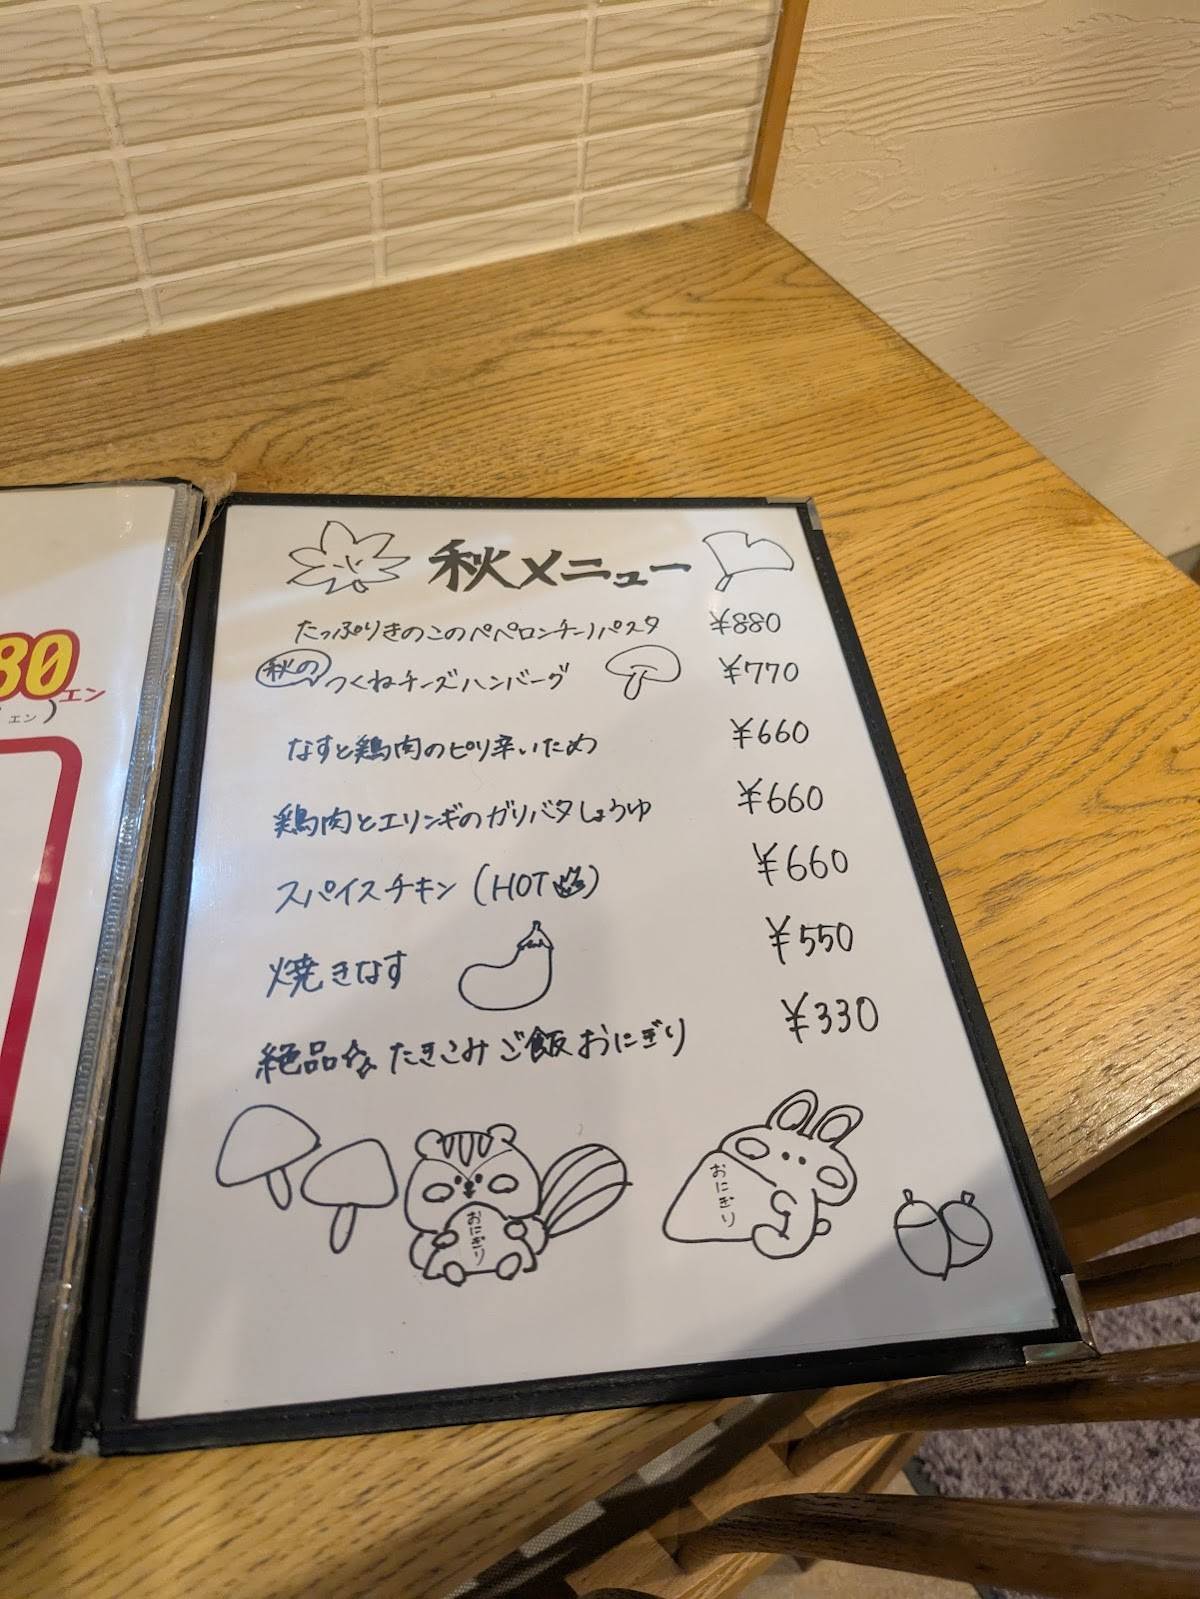 80エン
エン)
秋メニュー
たっぷりきのこのペペロンチーノパスタ ¥880
秋の つくねチーズハンバーグ ¥770
なすと鶏肉のピリ辛いため ¥660
鶏肉とエリンギのガリバタしょうゆ ¥660
スパイスチキン(HOT) ¥660
焼きなす ¥550
絶品☆たきこみご飯おにぎり ¥330
おにぎり
おにぎり